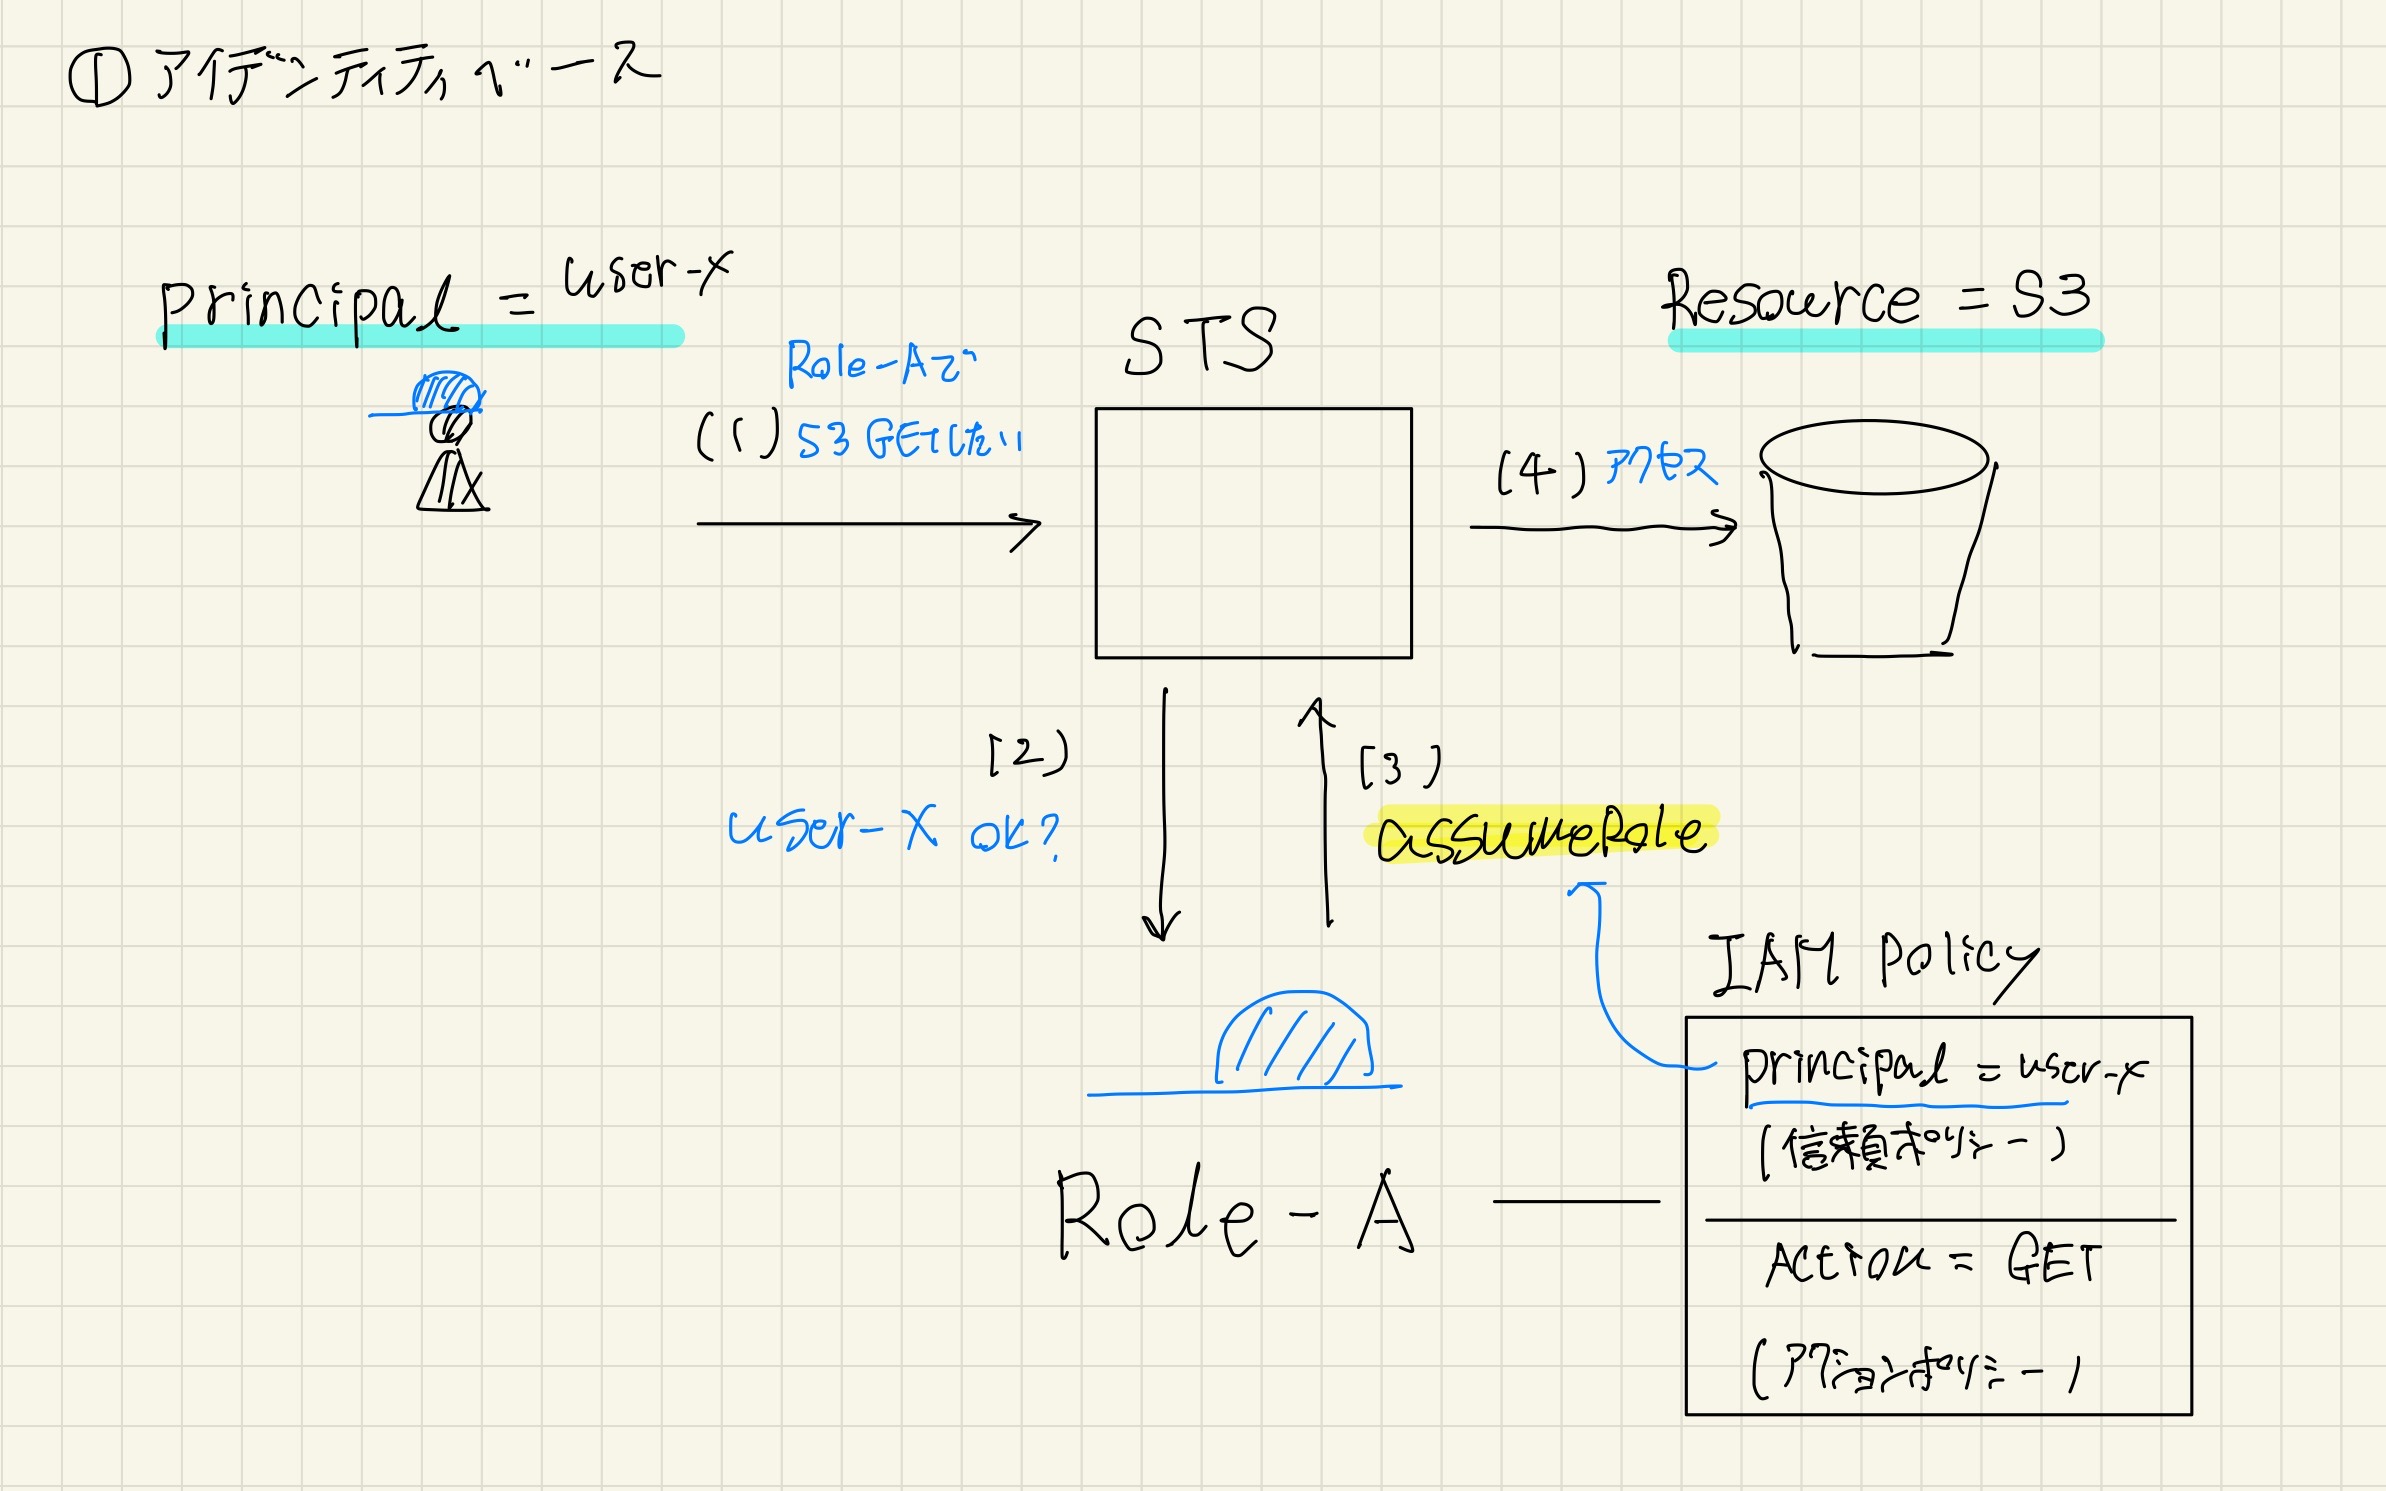 ① アイデンティティベース
principal = user-x
Role-Aで
(1) S3 GETしたい
STS
Resource = S3
(4) アクセス
(2)
user-X OK?
(3)
assumeRole
IAM policy
principal = user-x
(信頼ポリシー)
Action = GET
(アクションポリシー)
Role-A